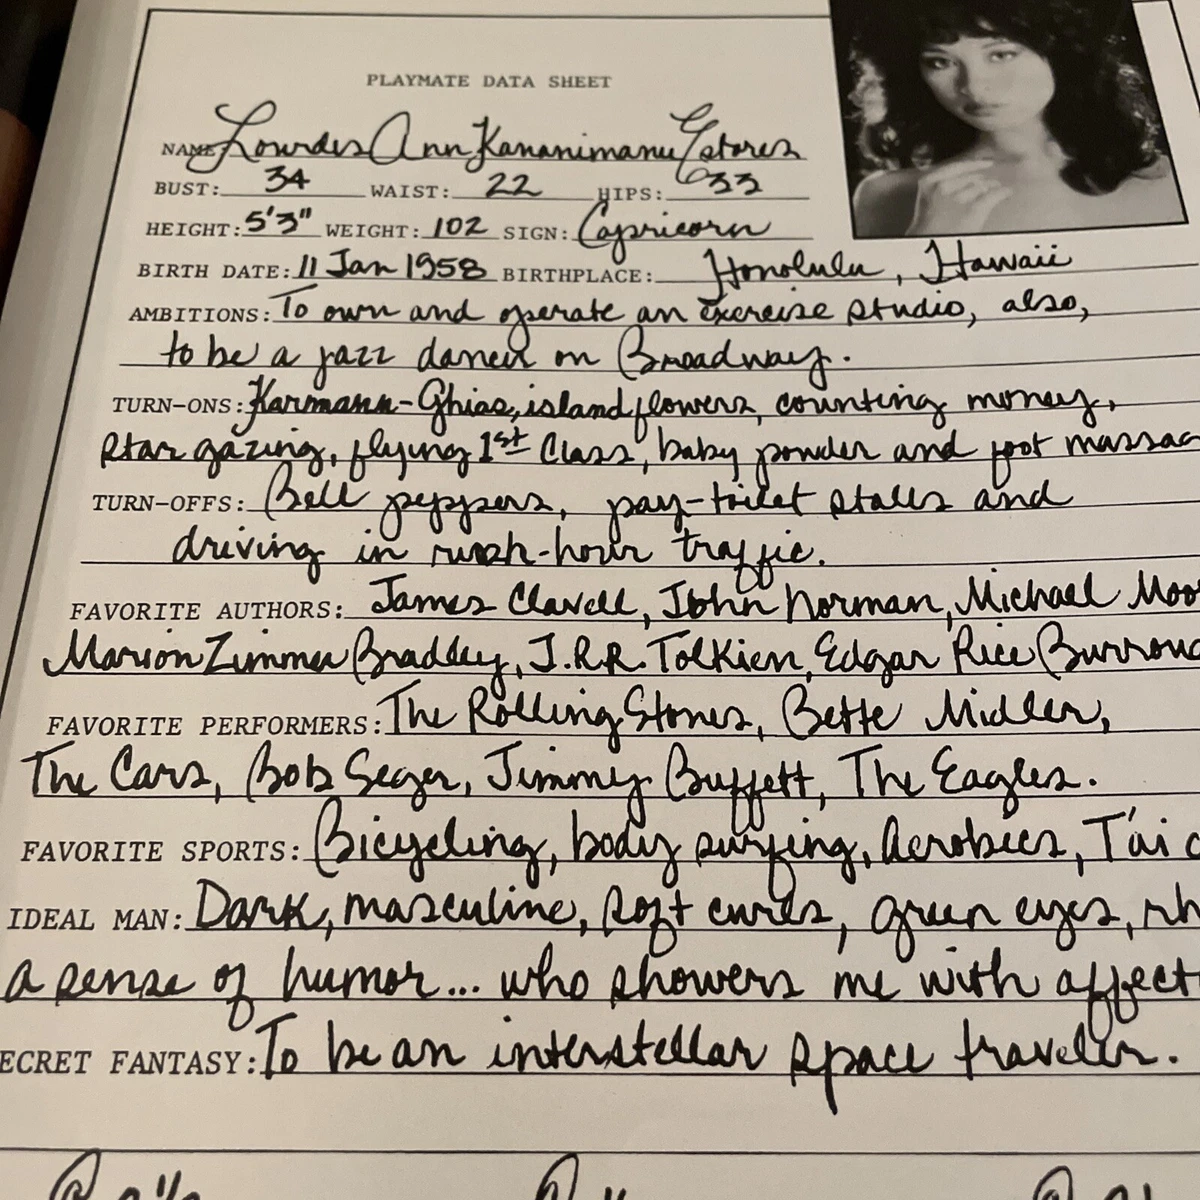 PLAYMATE DATA SHEET
NAME: Lourdes Ann Kananimanu Estores
BUST: 34 WAIST: 22 HIPS: 33
HEIGHT: 5'3" WEIGHT: 102 SIGN: Capricorn
BIRTH DATE: 11 Jan 1958 BIRTHPLACE: Honolulu, Hawaii
AMBITIONS: To own and operate an exercise studio, also,
to be a jazz dancer on Broadway.
TURN-ONS: Karmann-Ghias, island flowers, counting money,
star gazing, flying 1st Class, baby powder and foot massag
TURN-OFFS: Bell peppers, pay-toilet stalls and
driving in rush-hour traffic.
FAVORITE AUTHORS: James Clavell, John Norman, Michael Moo
Marion Zimmer Bradley, J.R.R. Tolkien, Edgar Rice Burroug
FAVORITE PERFORMERS: The Rolling Stones, Bette Midler,
The Cars, Bob Seger, Jimmy Buffett, The Eagles.
FAVORITE SPORTS: Bicycling, body surfing, Aerobics, T'ai c
IDEAL MAN: Dark, masculine, soft curls, green eyes,
a sense of humor... who showers me with affect
ECRET FANTASY: To be an interstellar space traveler.